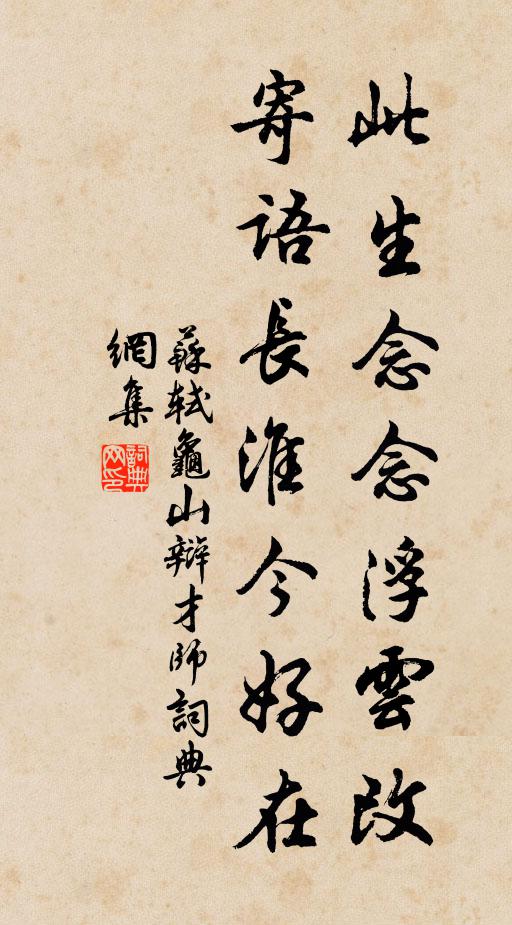 此生念念浮雲改
寄語長淮今好在
蘇軾龜山辯才師詞典
網集
詞典
网印